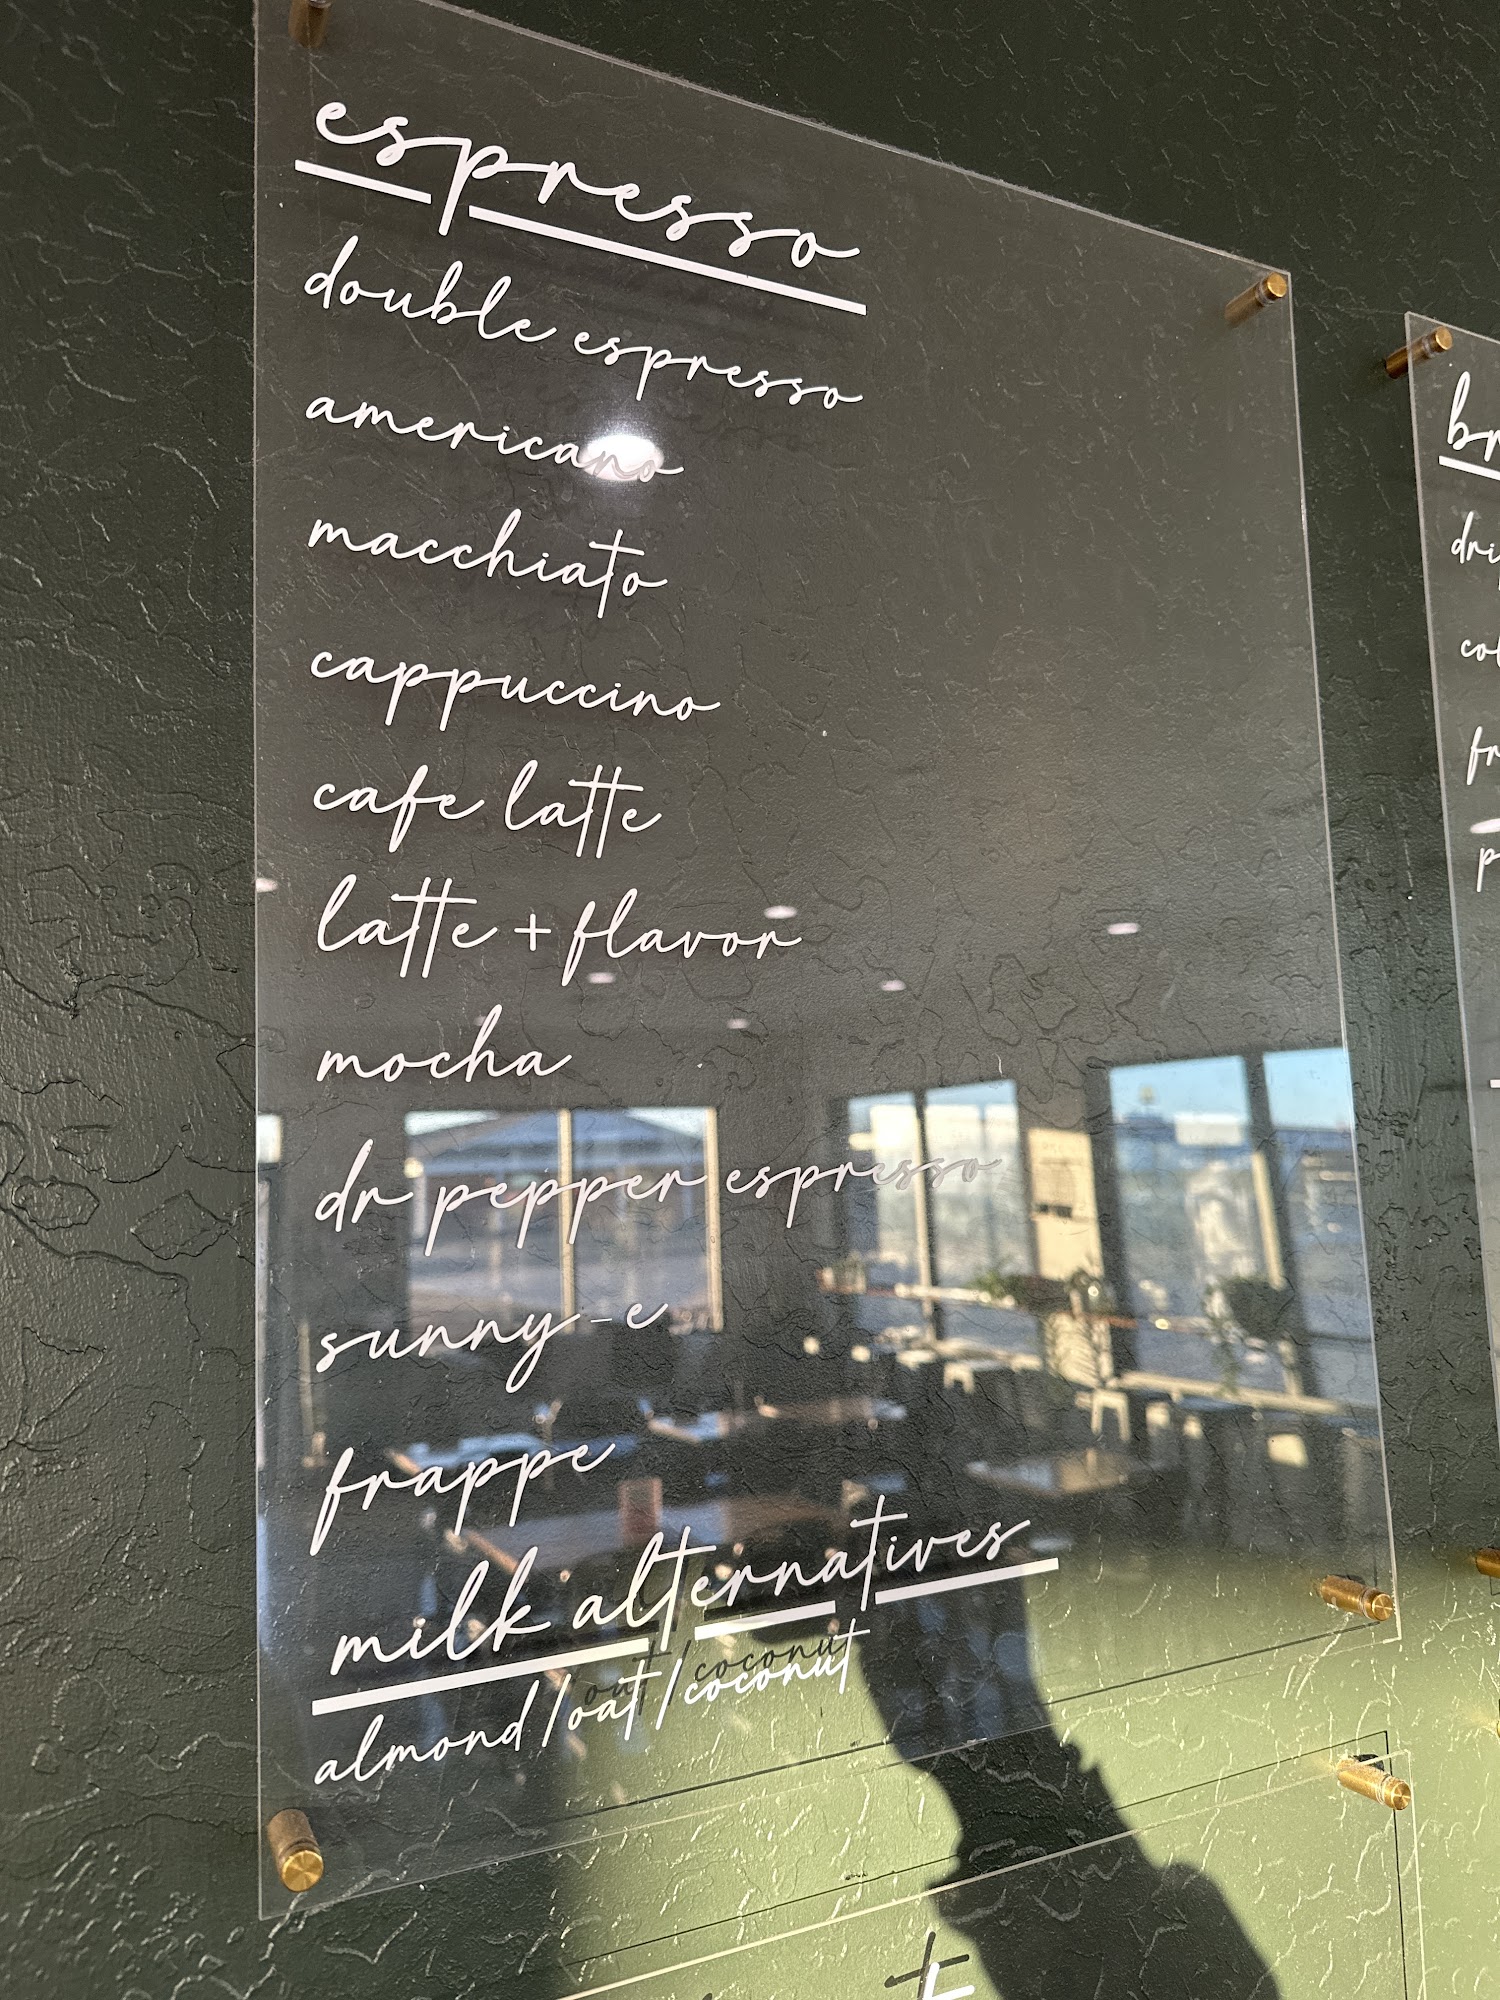 espresso
double espresso
americano
macchiato
cappuccino
cafe latte
latte + flavor
mocha
dr pepper espresso
sunny-e
frappe
milk alternatives
almond/oat/coconut